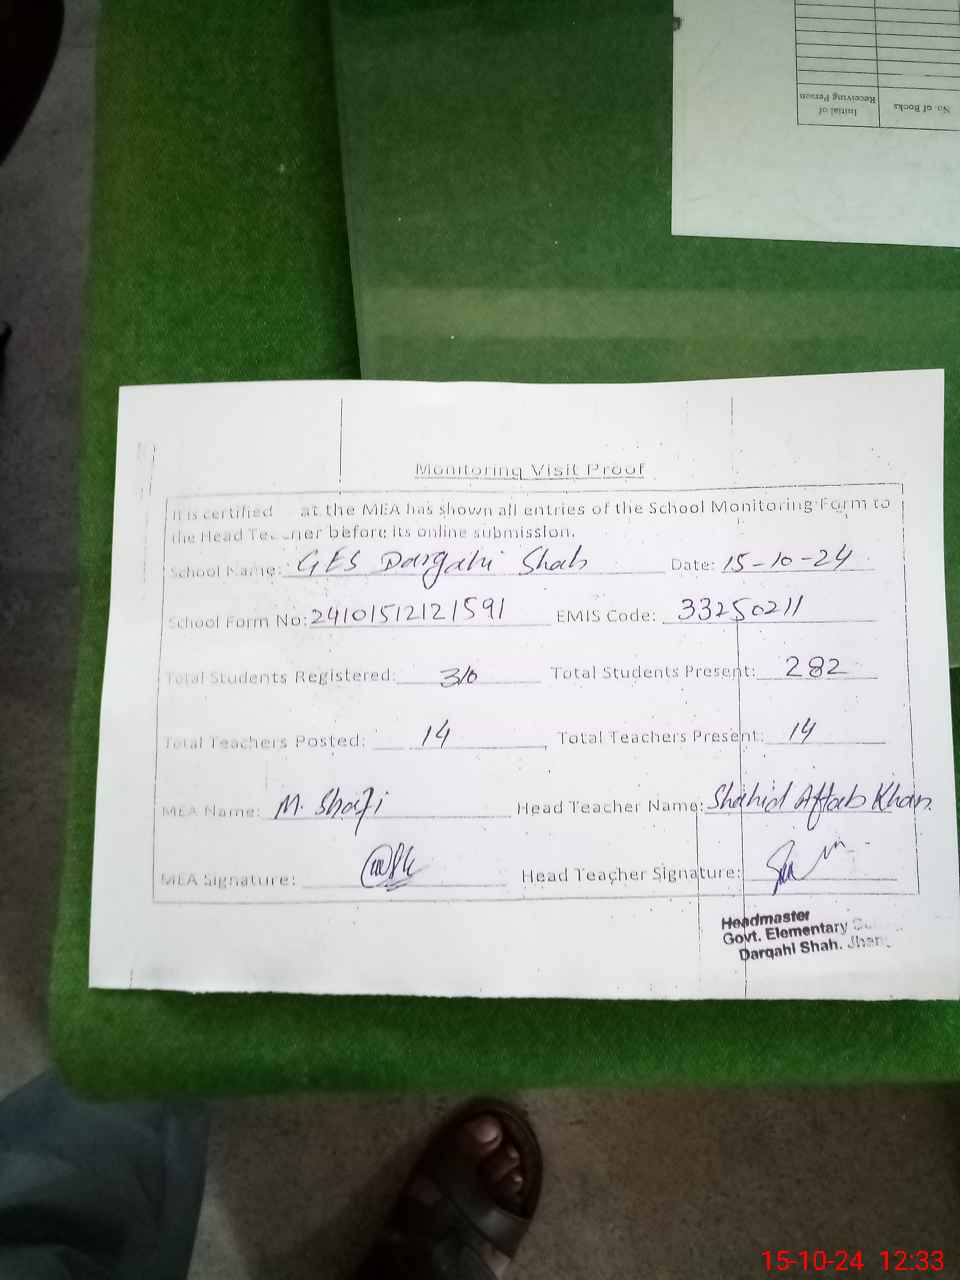 No. of Books
Initial of
Receiving Person
Monitoring Visit Proof
It is certified at the MEA has shown all entries of the School Monitoring Form to
the Head Te ner before its online submission.
School Name: GES Dargahi Shah Date: 15-10-24
School Form No: 24101512121591 EMIS Code: 33250211
Total Students Registered: 310 Total Students Present: 282
Total Teachers Posted: 14 Total Teachers Present: 14
MEA Name: M. Shafi Head Teacher Name: Shahid Aftab Khan
MEA Signature: Head Teacher Signature:
Headmaster
Govt. Elementary
Dargahi Shah. Jhang
15-10-24 12:33